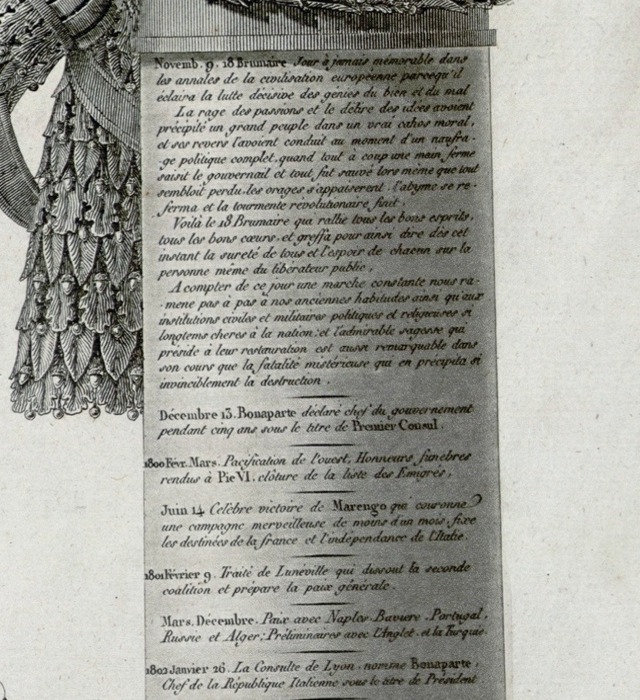 Novemb. 9. 18 Brumaire. Jour à jamais mémorable dans
les annales de la civilisation européenne parcequ'il
éclaira la lutte décisive des génies du bien et du mal
La rage des passions et le délire des idées avoient
précipité un grand peuple dans un vrai cahos moral,
et ses revers l'avoient conduit au moment d'un naufra-
ge politique complet, quand tout à coup une main ferme
saisit le gouvernail et tout fut sauvé lors même que tout
sembloit perdu. les orages s'appaiserent. l'abyme se re-
ferma et la tourmente révolutionaire finit.
Voilà le 18 Brumaire qui rallie tous les bons esprits,
tous les bons cœurs, et greffa pour ainsi dire dès cet
instant la sureté de tous et l'espoir de chacun sur la
personne même du libérateur public.
A compter de ce jour une marche constante nous ra-
mene pas à pas à nos anciennes habitudes ainsi qu'aux
institutions civiles et militaires politiques et religieuses si
longtems cheres à la nation: et l'admirable sagesse qui
preside à leur restauration est aussi remarquable dans
son cours que la fatalité mistérieuse qui en précipita si
invinciblement la destruction.
Décembre 13. Bonaparte déclaré chef du gouvernement
pendant cinq ans sous le titre de Premier Consul.
1800 Févr. Mars. Pacification de l'ouest, Honneurs funebres
rendus à Pie VI, clôture de la liste des Emigrés.
Juin 14 Célebre victoire de Marengo qui couronne
une campagne merveilleuse de moins d'un mois, fixe
les destinées de la france et l'indépendance de l'Italie.
1801 Février 9. Traité de Lunéville qui dissout la seconde
coalition et prépare la paix générale.
Mars. Décembre. Paix avec Naples. Baviere. Portugal,
Russie et Alger; Préliminaires avec l'Anglet. et la Turquie.
1802 Janvier 26. La Consulte de Lyon nomme Bonaparte,
Chef de la République Italienne sous le titre de Président.